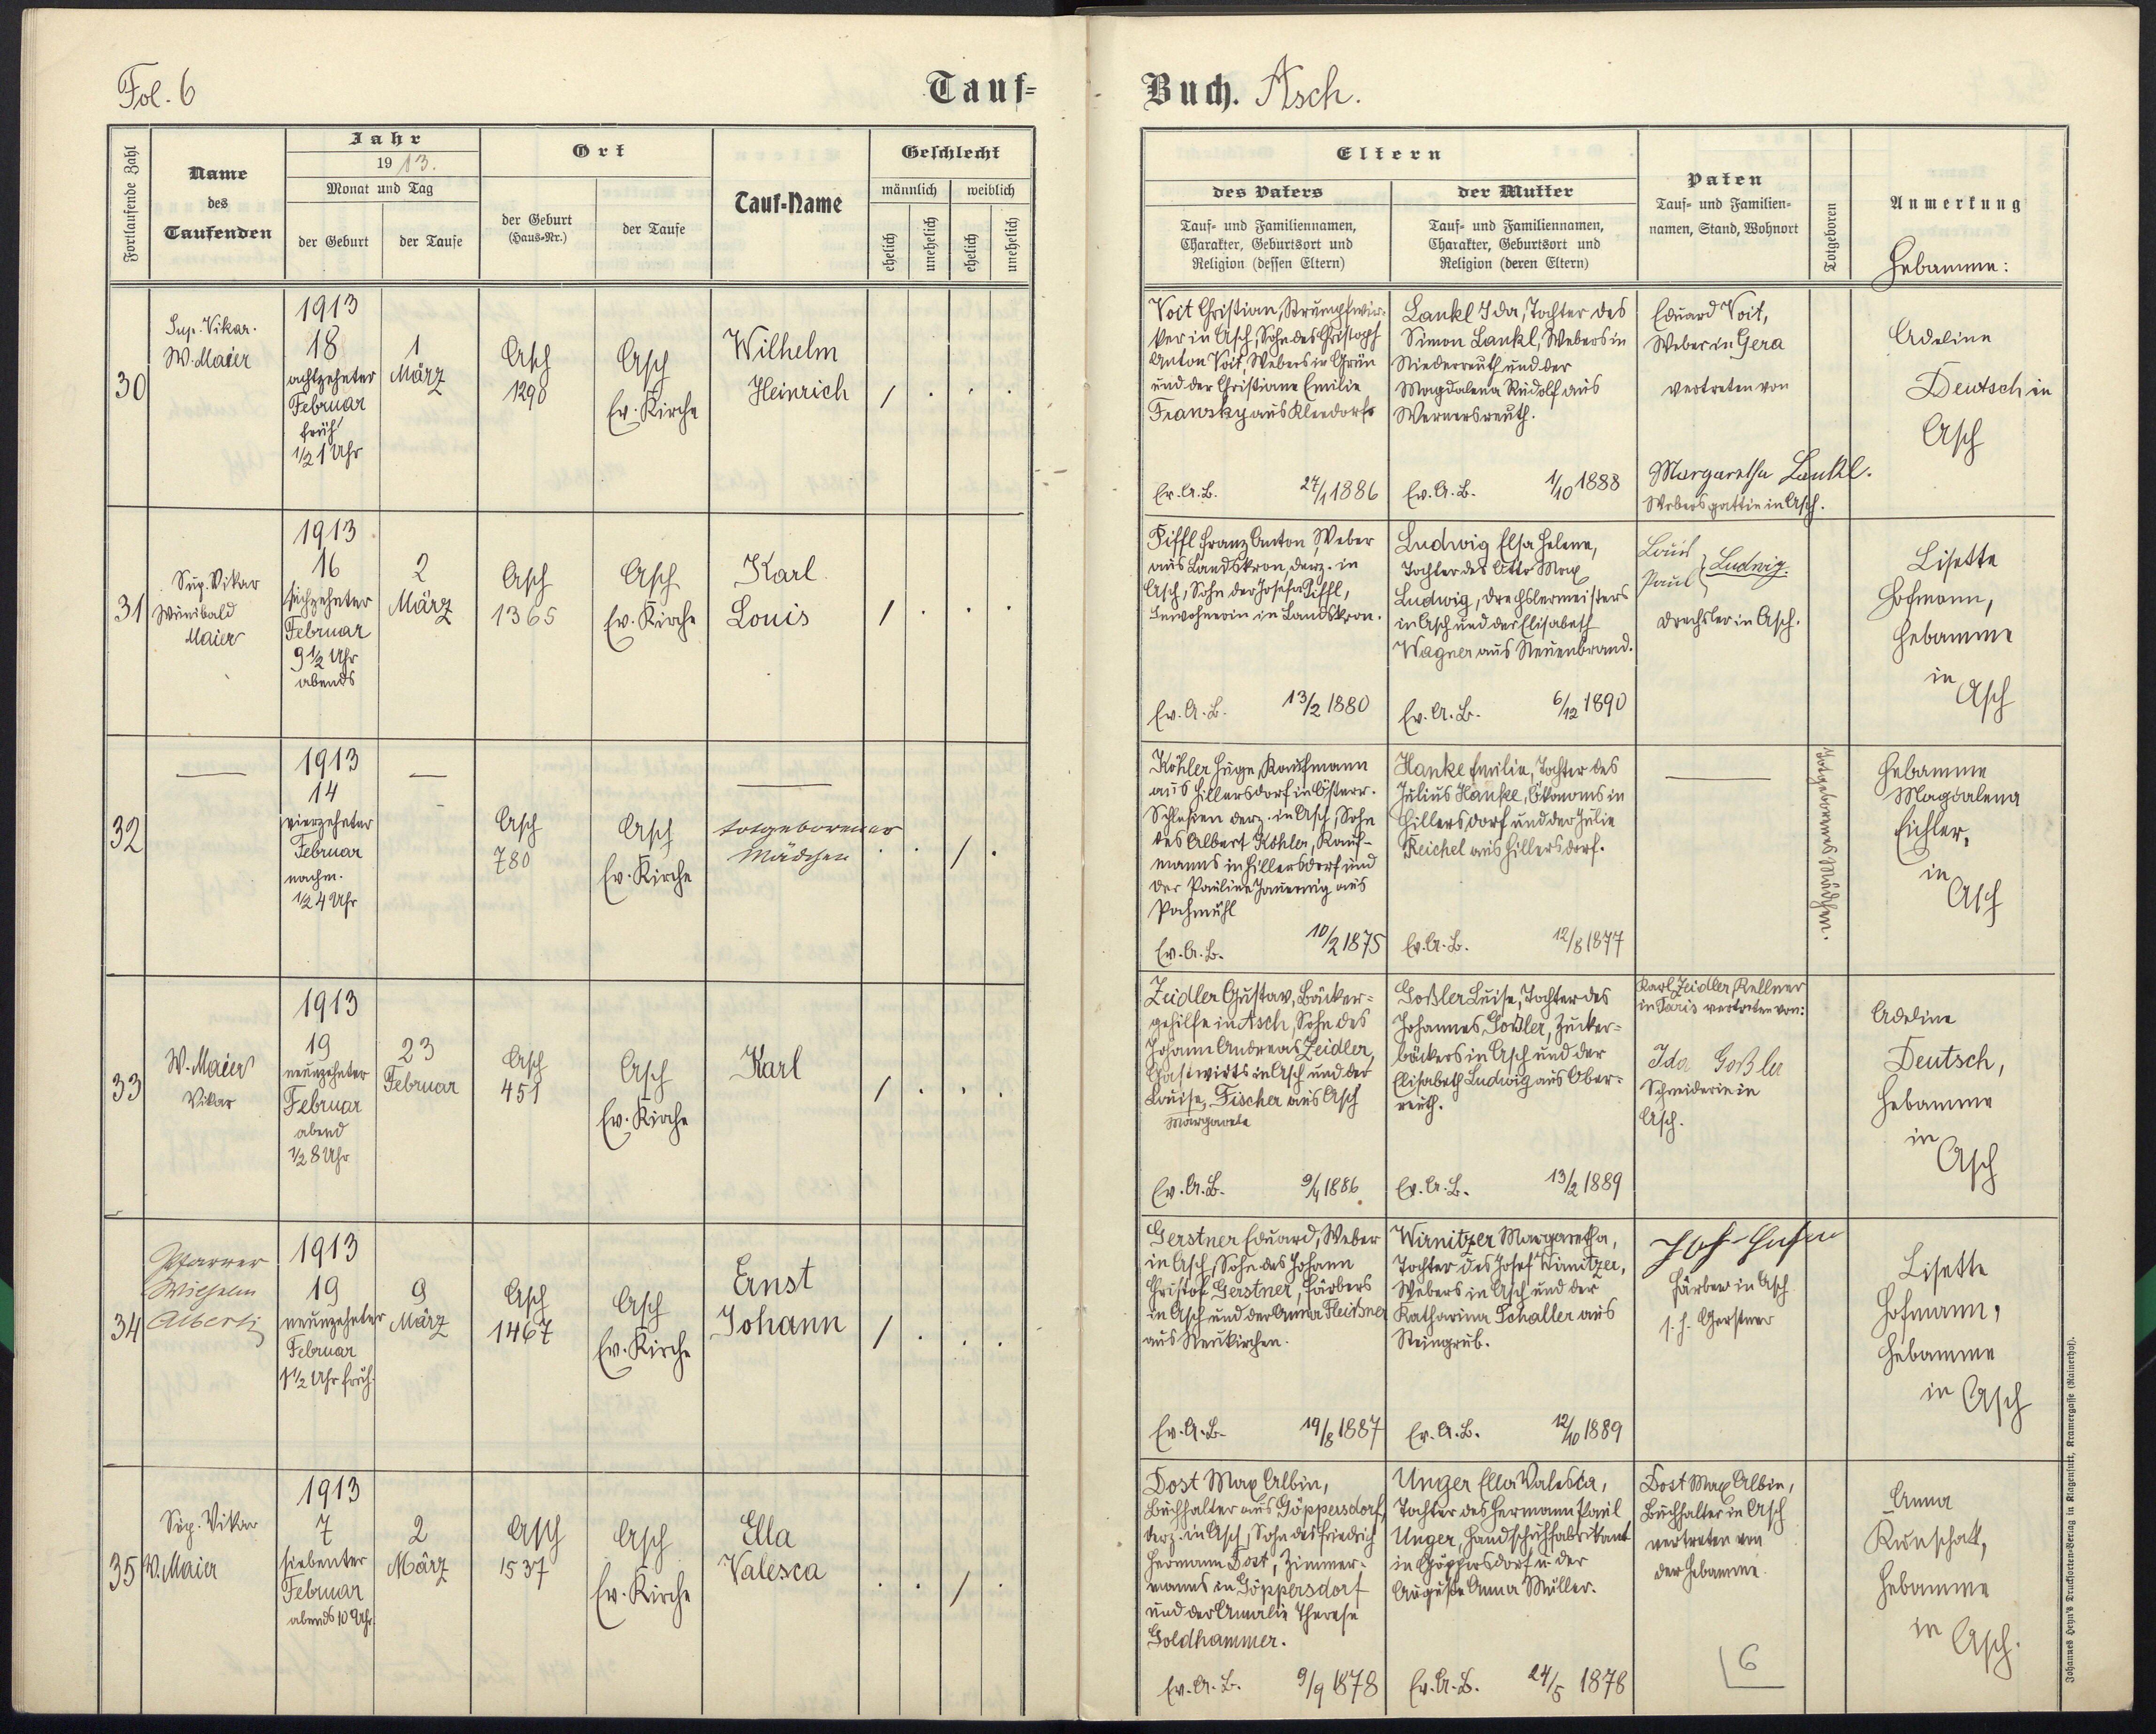 Fol. 6
Tauf-
Buch. Asch.
Fortlaufende Zahl
Name
des
Taufenden
Jahr
1913.
Monat und Tag
der Geburt
der Taufe
Ort
der Geburt
(Haus-Nr.)
der Taufe
Tauf-Name
Geschlecht
männlich
weiblich
ehelich
unehelich
ehelich
unehelich
Eltern
des Vaters
Tauf- und Familiennamen,
Charakter, Geburtsort und
Religion (dessen Eltern)
der Mutter
Tauf- und Familiennamen,
Charakter, Geburtsort und
Religion (deren Eltern)
Paten
Tauf- und Familien-
namen, Stand, Wohnort
Totgeboren
Anmerkung
Hebamme:
30
Sup. Vikar.
W. Maier
1913
18
achtzehnter
Februar
früh
1/2 1 Uhr
1
März
Asch
1290
Asch
Ev. Kirche
Wilhelm
Heinrich
/ . . .
Voit Christian, Strumpfwir-
ker in Asch, Sohn des Christoph
Anton Voit, Webers in Grün
und der Christiane Emilie
aus
Ev. A. B. 27/1 1886
Lankl Ida, Tochter des
Simon Lankl, Webers in
Niederreuth und der
Magdalena Rudolf aus
Wernersreuth.
Ev. A. B. 1/10 1888
Eduard Voit,
Weber in Gera
vertreten von
Margaretha Lankl.
Webersgattin in Asch.
Adeline
Deutsch in
Asch
31
Sup. Vikar
Wunibald
Maier
1913
16
sechzehnter
Februar
9 1/2 Uhr
abends
2
März
Asch
1365
Asch
Ev. Kirche
Karl
Louis
/ . . .
Piffl Franz Anton, Weber
aus Landskron, derz. in
Asch, Sohn der Josefa Piffl,
Inwohnerin in Landskron.
Ev. A. B. 13/2 1880
Ludwig Elsa Helene,
Tochter des Otto Max
Ludwig, Drechslermeisters
in Asch und der Elisabeth
Wagner aus Neuenbrand.
Ev. A. B. 6/12 1890
Louis
Paul } Ludwig.
Drechsler in Asch.
Lisette
Hofmann,
Hebamme
in
Asch
32
1913
14
vierzehnter
Februar
nachm.
1/2 4 Uhr
Asch
780
Asch
Ev. Kirche
totgeborenes
Mädchen
. . / .
Köhler Hugo, Kaufmann
aus Hillersdorf in Österr.
Schlesien derz. in Asch, Sohn
des Albert Köhler, Kauf-
manns in Hillersdorf und
der Pauline aus
Ev. A. B. 10/2 1875
Hanke Emilie, Tochter des
Julius Hanke, Ökonoms in
Hillersdorf und der Julie
Reichel aus Hillersdorf.
Ev. A. B. 12/8 1877
Totgeborenes Mädchen.
Hebamme
Magdalena
Eichler,
in
Asch
33
W. Maier
Vikar
1913
19
neunzehnter
Februar
abend
1/2 8 Uhr
23
Februar
Asch
451
Asch
Ev. Kirche
Karl
/ . . .
Zeidler Gustav, Bäcker-
gehilfe in Asch, Sohn des
Johann Andreas Zeidler,
Gastwirts in Asch und der
Louise, Fischer aus Asch
Margarete
Ev. A. B. 9/4 1886
Goßler Luise, Tochter des
Johannes Goßler, Zucker-
bäckers in Asch und der
Elisabeth Ludwig aus Ober-
reuth.
Ev. A. B. 13/2 1889
Karl Zeidler, Kellner
in Paris vertreten von:
Ida Goßler
Schneiderin in
Asch.
Adeline
Deutsch,
Hebamme
in
Asch
34
Pfarrer
Wilhelm
Alberti
1913
19
neunzehnter
Februar
1 1/2 Uhr früh.
9
März
Asch
1467
Asch
Ev. Kirche
Ernst
Johann
/ . . .
Gerstner Eduard, Weber
in Asch, Sohn des Johann
Christof Gerstner, Färbers
in Asch und der Anna Fleißner
aus Neukirchen.
Ev. A. B. 19/8 1887
Wirnitzer Margaretha,
Tochter des Josef Wirnitzer,
Webers in Asch und der
Katharina Schaller aus
Steingrub.
Ev. A. B. 12/10 1889
Färber in Asch
Gerstner
Lisette
Hofmann,
Hebamme
in Asch
35
Sup. Vikar
W. Maier
1913
7
siebenter
Februar
abends 10 Uhr.
2
März
Asch
1537
Asch
Ev. Kirche
Ella
Valesca
. . / .
Dost Max Albin,
Buchhalter aus Göppersdorf,
derz. in Asch, Sohn des Friedrich
Hermann Dost, Zimmer-
manns in Göppersdorf
und der Amalie Therese
Goldhammer.
Ev. A. B. 9/9 1878
Unger Ella Valesca,
Tochter des Hermann Paul
Unger, Handschuhfabrikant
in Göppersdorf u. der
Auguste Anna Müller.
Ev. A. B. 24/5 1878
Dost Max Albin,
Buchhalter in Asch
vertreten von
der Hebamme.
Anna
Künschatt,
Hebamme
in
Asch.
6
Johannes Heyn's Drucksorten-Verlag in Klagenfurt, Kramergasse (Rainerhof).